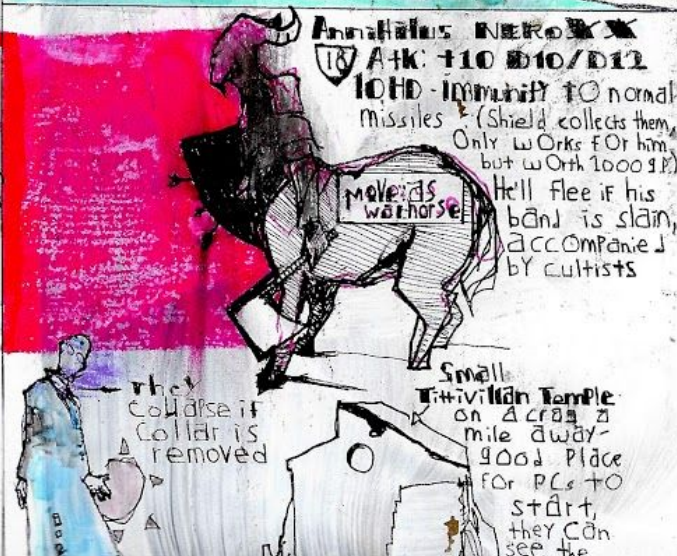 Annihilus NERO XX
18 Atk: +10 D10/D12
10HD - immunity to normal
missiles (Shield collects them,
Only works for him,
but worth 1000 g.p.)
He'll flee if his
band is slain,
accompanied
by cultists
Move: as
warhorse
They
collapse if
collar is
removed
Small
Tittivillan Temple
on a crag a
mile away-
good place
for PCs to
start,
they can
see the